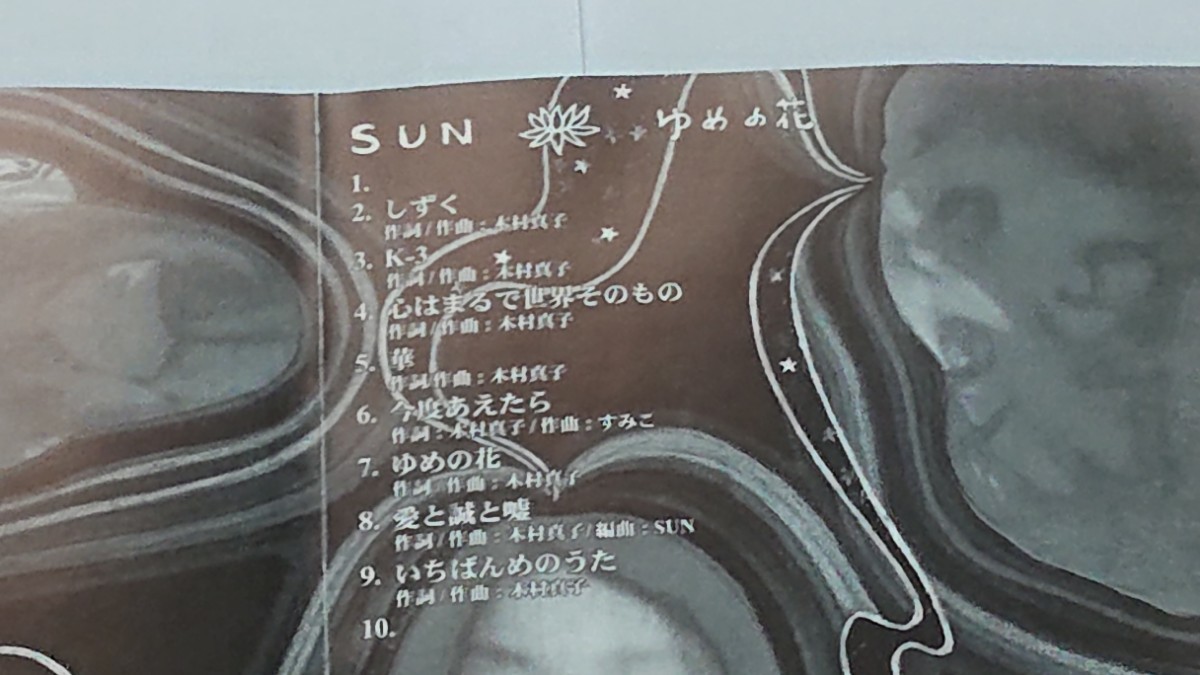 SUN ゆめの花
1.
2. しずく
作詞/作曲：木村真子
3. K-3
作詞/作曲：木村真子
4. 心はまるで世界そのもの
作詞/作曲：木村真子
5. 華
作詞/作曲：木村真子
6. 今度あえたら
作詞：木村真子/作曲：すみこ
7. ゆめの花
作詞/作曲：木村真子
8. 愛と誠と嘘
作詞/作曲：木村真子/編曲：SUN
9. いちばんめのうた
作詞/作曲：木村真子
10.